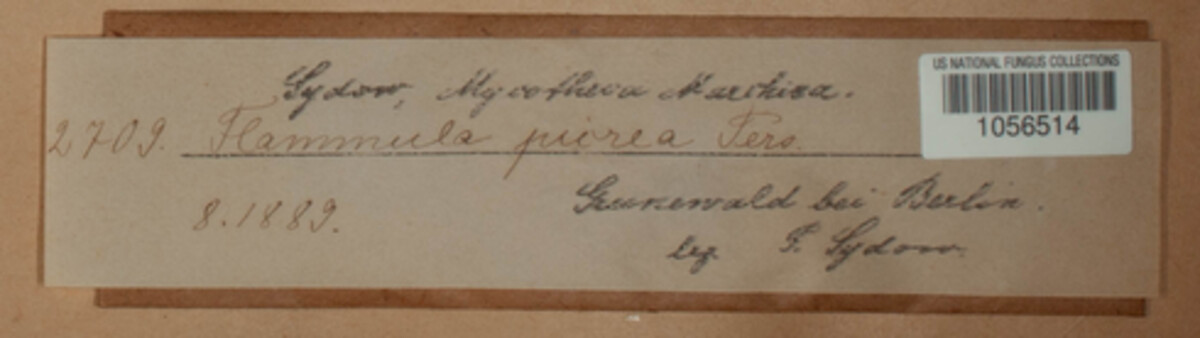 Sydow, Mycotheca Marchica.
US NATIONAL FUNGUS COLLECTIONS
1056514
2709. Flammula picrea Pers.
8.1889.
Grunewald bei Berlin.
leg. P. Sydow.